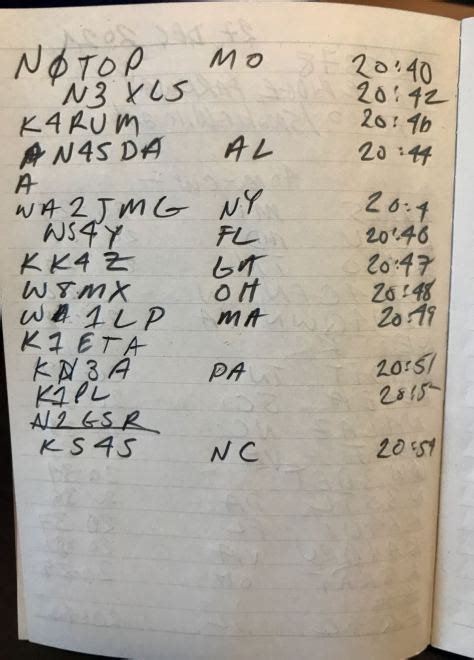 NØTOP MO 20:40
N3XLS 20:42
K4RUM 20:46
N4SDA AL 20:44
A
WA2JMG NY 20:4
WS4Y FL 20:46
KK4Z GA 20:47
W8MX OH 20:48
W1LP MA 20:49
K1ETA
KN3A PA 20:51
K1PL 20:5
N2GSR
KS4S NC